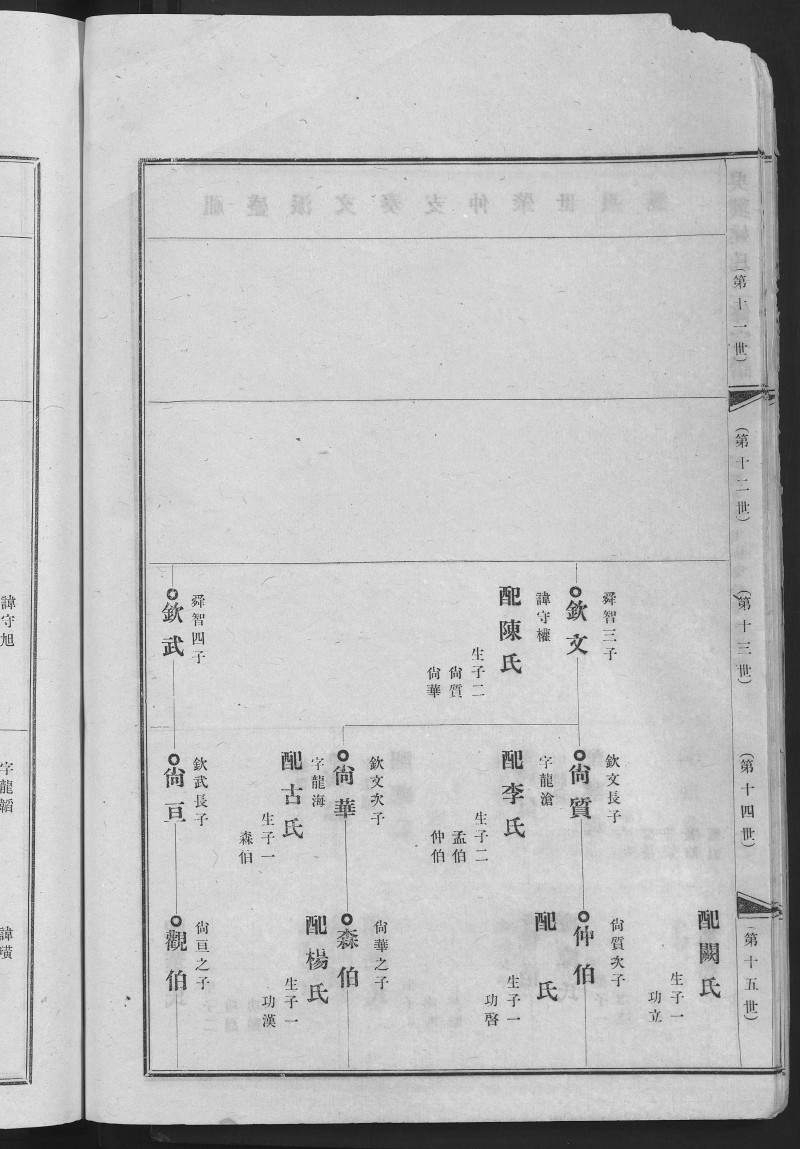 (第十一世)
(第十二世)
(第十三世)
舜智三子
欽文
諱守權
配陳氏
生子二
尙質
尙華
舜智四子
欽武
(第十四世)
欽文長子
尙質
字龍滄
配李氏
生子二
孟伯
仲伯
欽文次子
尙華
字龍海
配古氏
生子一
森伯
欽武長子
尙亘
(第十五世)
配闕氏
生子一
功立
尙質次子
仲伯
配 氏
生子一
功啓
尙華之子
森伯
配楊氏
生子一
功漢
尙亘之子
觀伯
諱守旭
字龍韜
諱璜